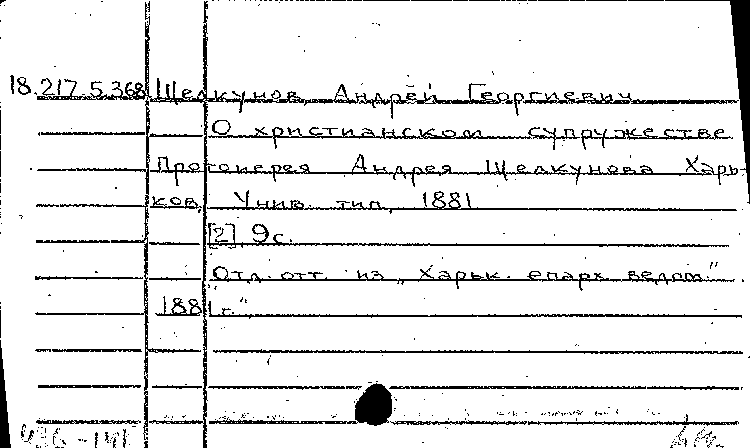 18.217.5.368 Щелкунов, Андрей Георгиевич
О христианском супружестве
Протоиерея Андрея Щелкунова Харь-
ков, Унив. тип., 1881
[2], 9 с.
Отд. отт. из „Харьк. епарх. ведом."
1881 г."